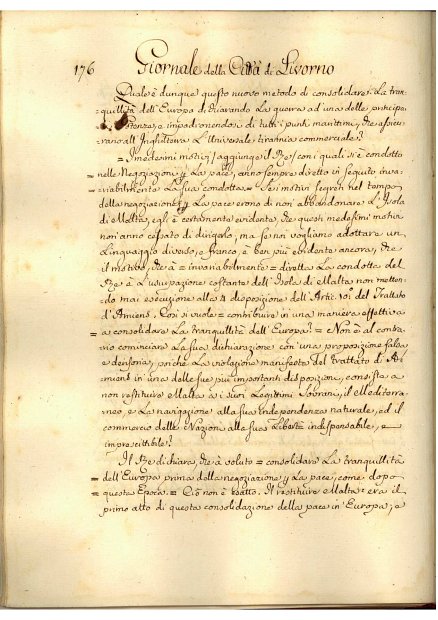 176 Giornale della Città di Livorno
Quale è dunque questo nuovo metodo di consolidare la tran-
=quillità dell'Europa dichiarando la guerra ad una delle principa-
Potenze, e impadronendosi di tutti i punti marittimi, che assicu-
rano all'Inghilterra l'Universale tirannia commerciale?
= I medesimi motivi aggiunge il Re con i quali si è condotto
nelle Negoziazioni la pace, anno sempre diretto in seguito inva-
=riabilmente la sua condotta = Se i motivi segreti nel tempo
della negoziazione la pace erono di non abbandonare l'Isola
di Malta, egli è certamente evidente, che questi medesimi motivi
non anno cessato di dirigerlo, ma se noi vogliamo adottare un
Linguaggio diverso, e franco, è ben più evidente ancora, che
il motivo, che à = invariabilmente = diretta la condotta del
Re è l'usurpazione costante dell'Isola di Malta non metten-
=do mai esecuzione alle disposizione dell'Artic. 10º del Trattato
d'Amiens. Così si vuole = contribuire in una maniera effettiva
= a consolidare la tranquillità dell'Europa? = Non è al contra-
=rio cominciare la sua dichiarazione con una proposizione falsa
e derisoria, poichè la violazione manifesta del trattato di A-
miens in una delle sue più importanti disposizioni, consiste a
non restituire Malta a i suoi Legittimi Sovrani, il Mediterra-
neo, e la navigazione alla sua independenza naturale, ed il
commercio delle Nazioni alla sua Libertà indispensabile, e
imprescittibile?
Il Re dichiara, che à voluto = consolidare la tranquillità
= dell'Europa prima della negoziazione la pace, come dopo
= questa Epoca. = Ciò non è esatto. Il restituire Malta era il
primo atto di questa consolidazione della pace in Europa; e